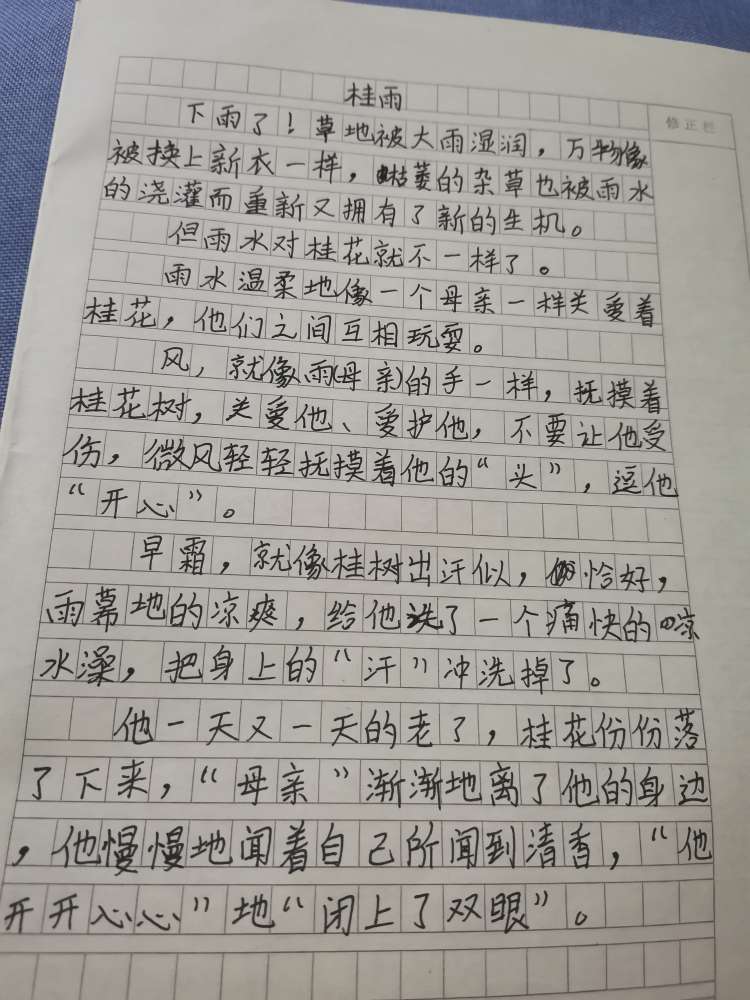 修正栏
桂雨
下雨了！草地被大雨湿润，万物像
被换上新衣一样，枯萎的杂草也被雨水
的浇灌而重新又拥有了新的生机。
但雨水对桂花就不一样了。
雨水温柔地像一个母亲一样关爱着
桂花，他们之间互相玩耍。
风，就像雨(母亲)的手一样，抚摸着
桂花树，关爱他、爱护他，不要让他受
伤，微风轻轻抚摸着他的“头”，逗他
“开心”。
早霜，就像桂树出汗似，恰好，
雨幕地的凉爽，给他洗了一个痛快的凉
水澡，把身上的“汗”冲洗掉了。
他一天又一天的老了，桂花份份落
了下来，“母亲”渐渐地离了他的身边
，他慢慢地闻着自己所闻到清香，“他
开开心心”地“闭上了双眼”。